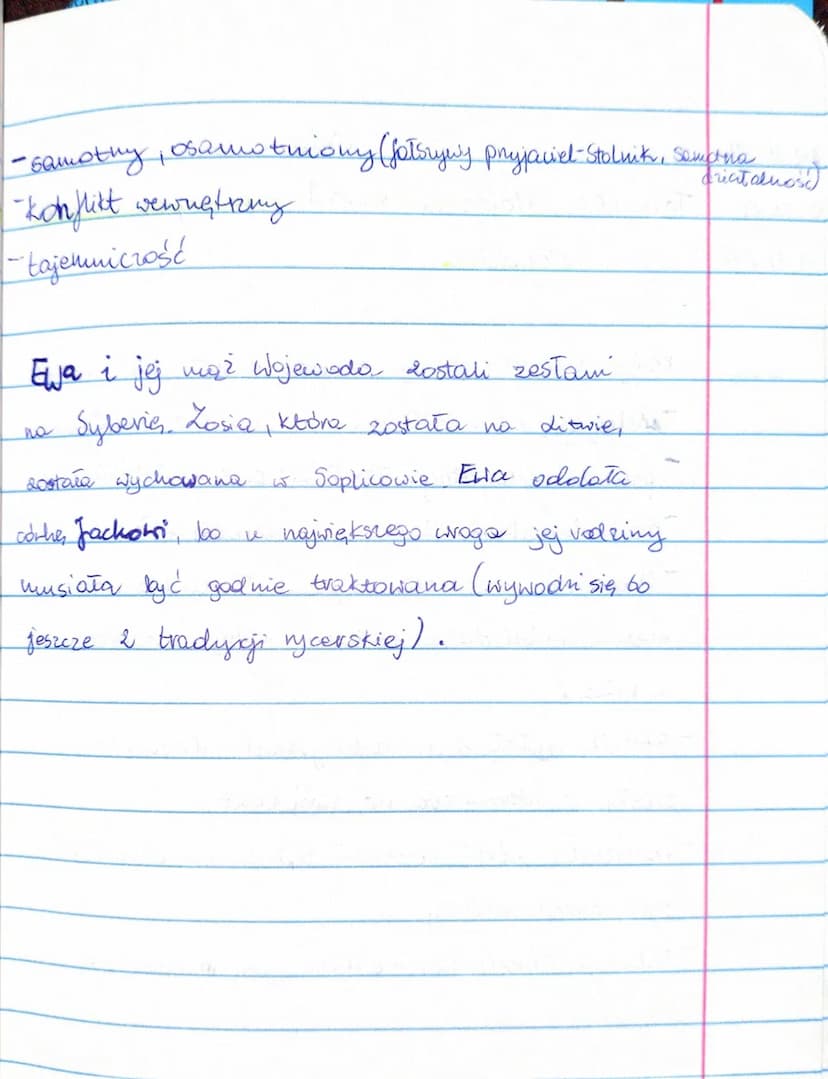 - samotny, osamotniony (fałszywy przyjaciel - Stolnik, samotna
działalność)
- konflikt wewnętrzny
- tajemniczość
Ewa i jej mąż Wojewoda zostali zesłani
na Syberię. Zosia, która została na Litwie,
została wychowana w Soplicowie. Ewa oddała
córkę Jackowi, bo u największego wroga jej rodziny
musiała być godnie traktowana (wywodzi się to
jeszcze z tradycji rycerskiej).